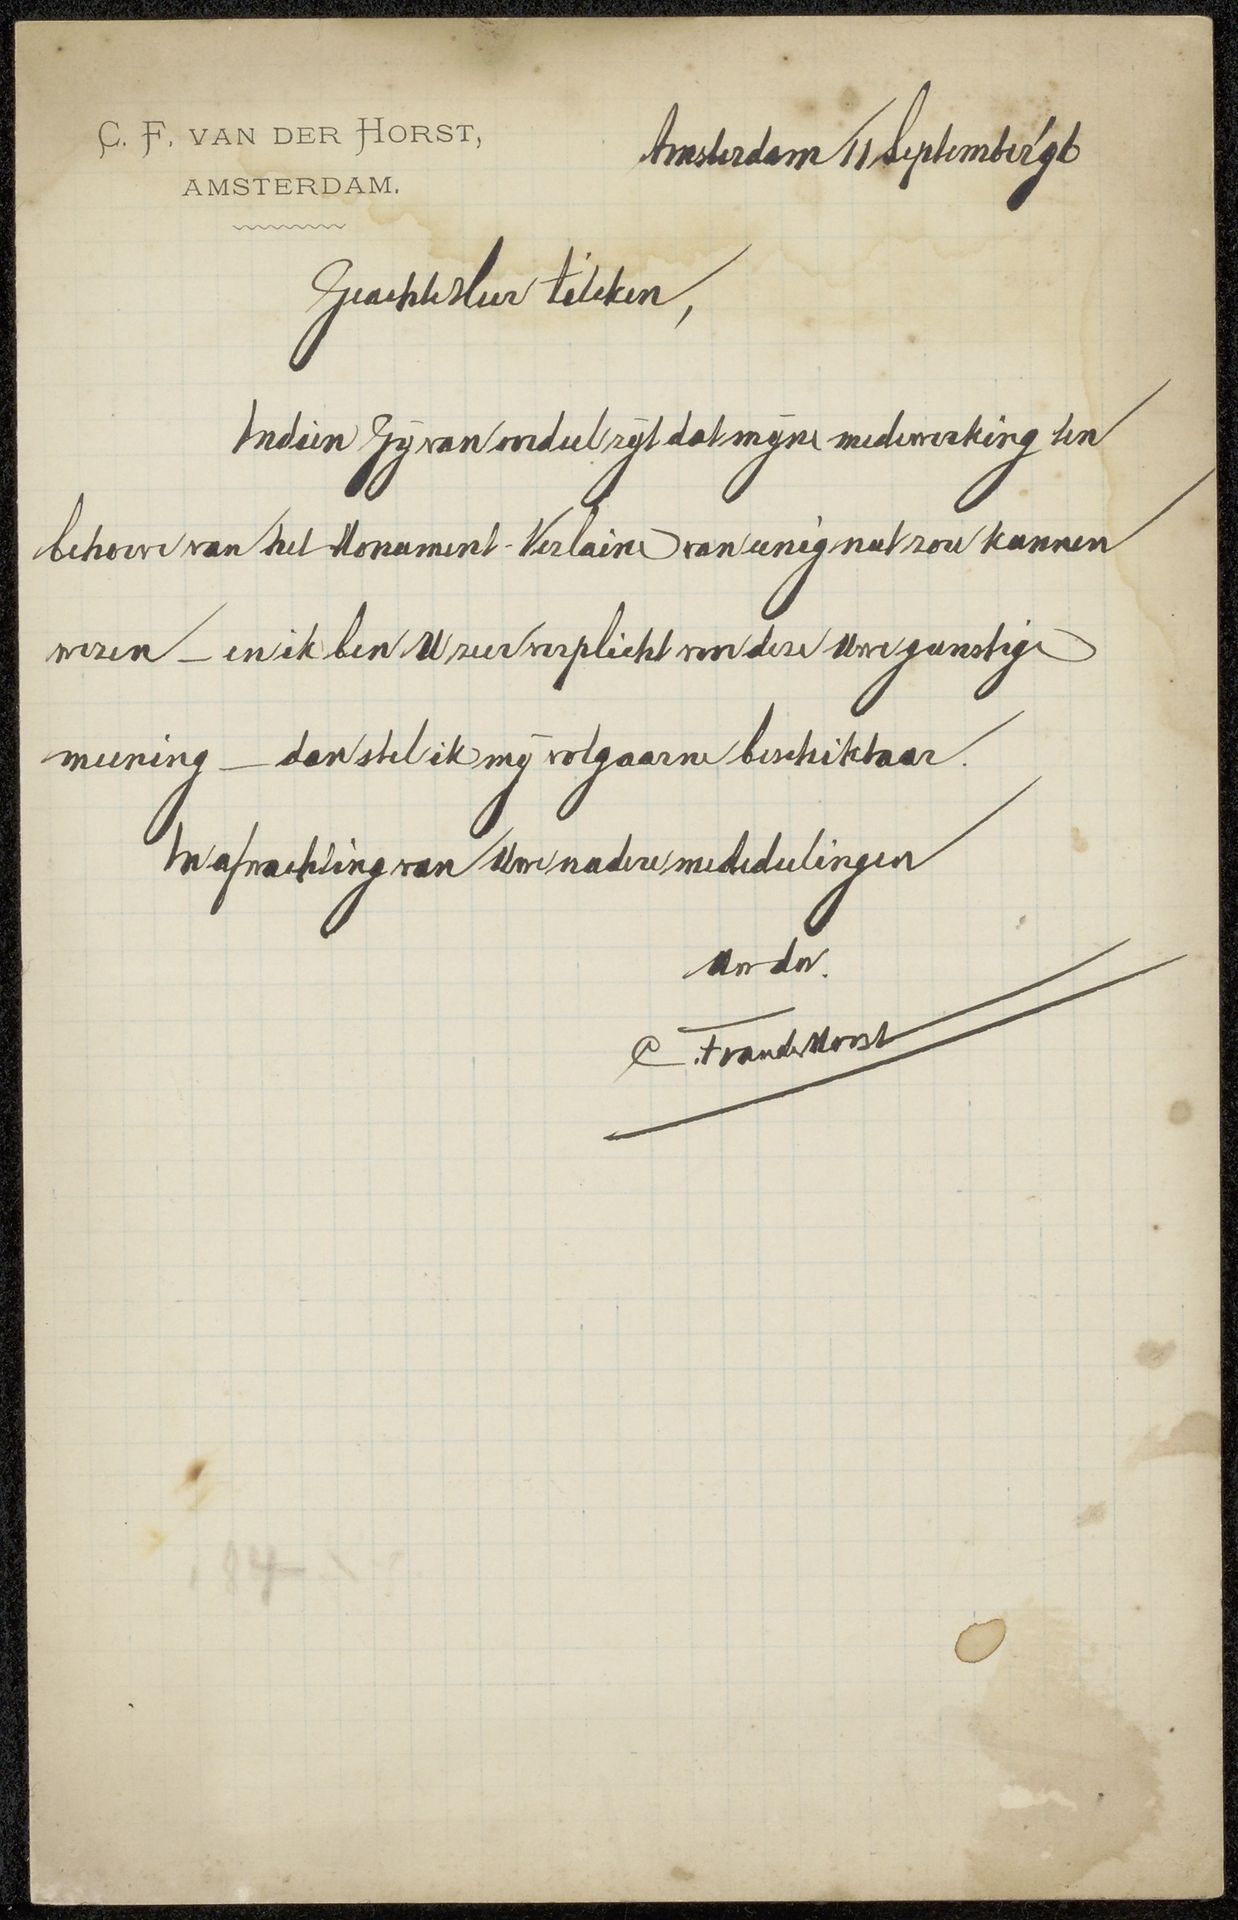 C. F. VAN DER HORST,
AMSTERDAM.
Amsterdam 11 September '96
Geachte Heer Tilcken,
Indien Gij van oordeel zijt dat mijne medewerking ten
behoeve van het Monument-Verlaine van eenig nut zou kunnen
wezen — en ik ben U zeer verplicht voor deze Uwe gunstige
meening — dan stel ik mij volgaarne beschikbaar.
In afwachting van Uwe nadere mededeelingen
C. F. van der Horst